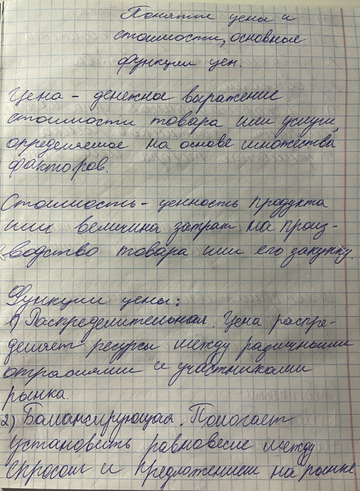 Понятие цены и
стоимости, основные
функции цен.
Цена - денежное выражение
стоимости товара или услуги,
определяемое на основе множества
факторов.
Стоимость - ценность продукта
или величина затрат на произ-
водство товара или его закупку.
Функции цены:
1) Распределительная. Цена распре-
деляет ресурсы между различными
отраслями и участниками
рынка.
2) Балансирующая. Помогает
установить равновесие между
спросом и предложением на рынке